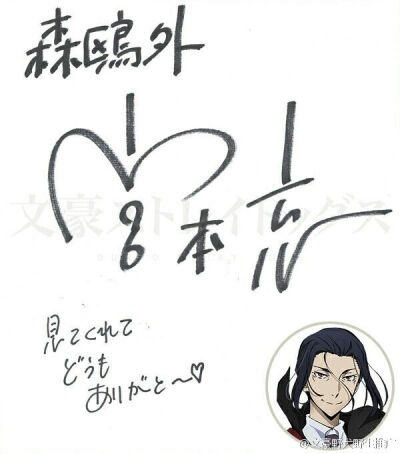 森鷗外
宮本充
文豪ストレイドッグス
見てくれて
どうも
ありがと〜♡